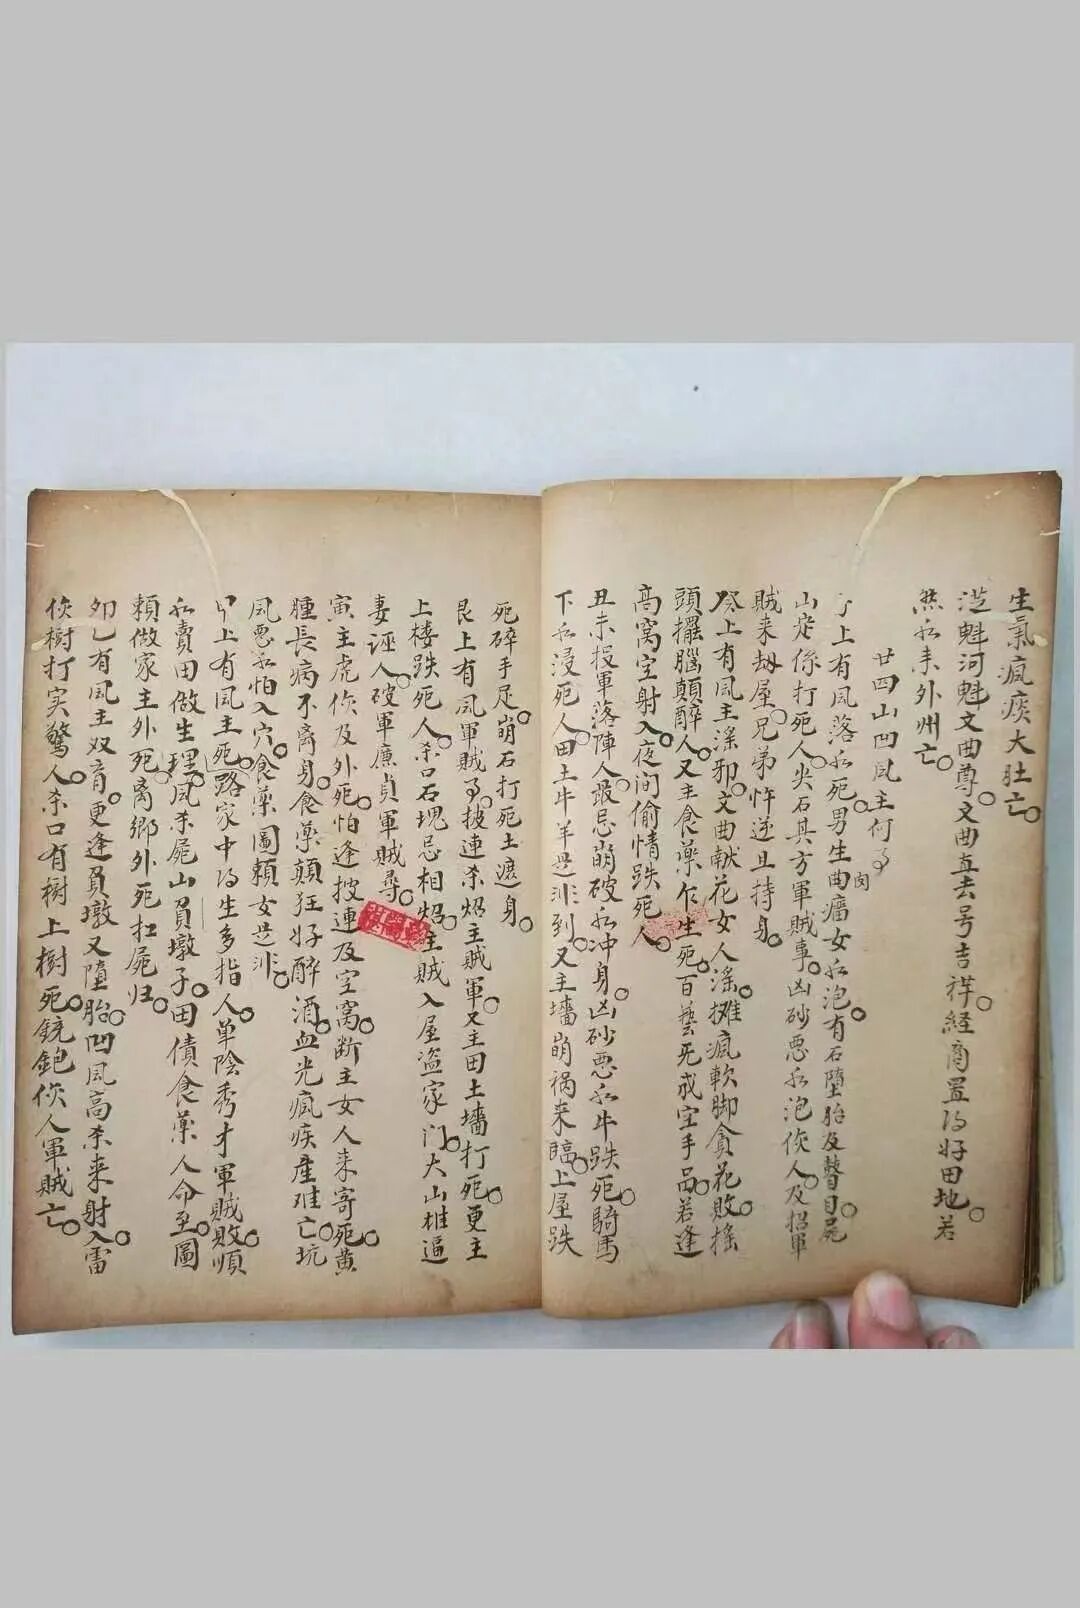 生氣瘋痰大肚亡
魁河魁文曲尊文曲直去号吉祥経商置好田地若
然水耒外州亡
廿四山凹凨主何
上有凨落水死男生曲瘤女水泡有石墮胎及瞽目屍
山定係打死人尖石其方軍賊事凶砂悪水泡人及招軍
賊来劫屋兄弟忤逆且持身
癸上有凨主滛邪文曲献花女人滛攤瘋軟脚貪花敗摇
頭擺腦顛醉人又主食藥乍生死百藝死戒空手品若逢
高窩空射入夜间偷情跌死人
丑未投軍落陣人最忌崩破水冲身凶砂悪水牛跌死騎馬
下水浸死人田土牛羊是非到又主墻崩祸来臨上屋跌
死碎手足崩石打死土遮身
艮上有凨軍賊披連杀炤主賊軍又主田土墻打死更主
上楼跌死人杀口石塊忌相炤主賊入屋盗家门大山推逼
妻誣人破軍廉貞軍賊尋
寅主虎及外死怕逢披連及空窩断主女人来寄死黄
腫長病不离身食藥顛狂好醉酒血光瘋疾産难亡坑
凨悪水怕入穴食藥圖頼女是非
上有凨主死路家中生多指人单陰秀才軍賊敗順
水賣田做生理凨杀屍山員墩子田債食藥人命至圖
頼做家主外死离鄉外死扛屍归
卯乙有凨主双育更逢員墩又墮胎凹凨高杀来射入雷
樹打实驚人杀口有樹上樹死銃鉋人軍賊亡